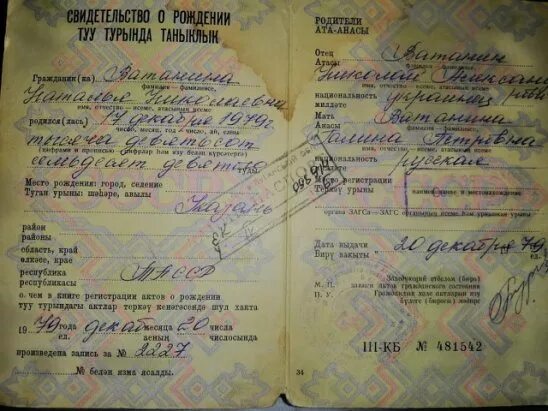 СВИДЕТЕЛЬСТВО О РОЖДЕНИИ
ТУУ ТУРЫНДА ТАНЫКЛЫК
Гражданин(ка) Ватанина
фамилия – фамилиясе,
Наталья Николаевна
имя, отчество – исеме, атасының исеме
родился(лась) 17 декабря 1979г
число, месяц, год
тысяча девятьсот
семьдесят девятого
Место рождения: город, селение
Туган урыны: шәһәре, авылы
Казань
район
районы
область, край
өлкәсе, крае
республика
республикасы
ТАССР
о чем в книге регистрации актов о рождении
туу турындагы актлар теркәү кенәгәсендә шул хакта
1979 года декаб месяца 20 числа
ел. аеның числосында
произведена запись за № 2227
№ белән язма ясалды.
РОДИТЕЛИ
АТА-АНАСЫ
Отец Ватанин
Атасы
фамилия – фамилиясе,
Николай
имя, отчество – исеме, атасының исеме
национальность
милләте
Мать
Анасы
фамилия – фамилиясе,
Галина Петровна
имя, отчество – исеме, атасының исеме
национальность русская
милләте
Место регистрации
Теркәү урыны
наименование и местонахождение
органа ЗАГСа
Дата выдачи 20 декабря 79
Бирү вакыты ел.
М. П.
П. У.
Заведующий отделом (бюро)
записи актов гражданского состояния
III-КБ № 481542
34